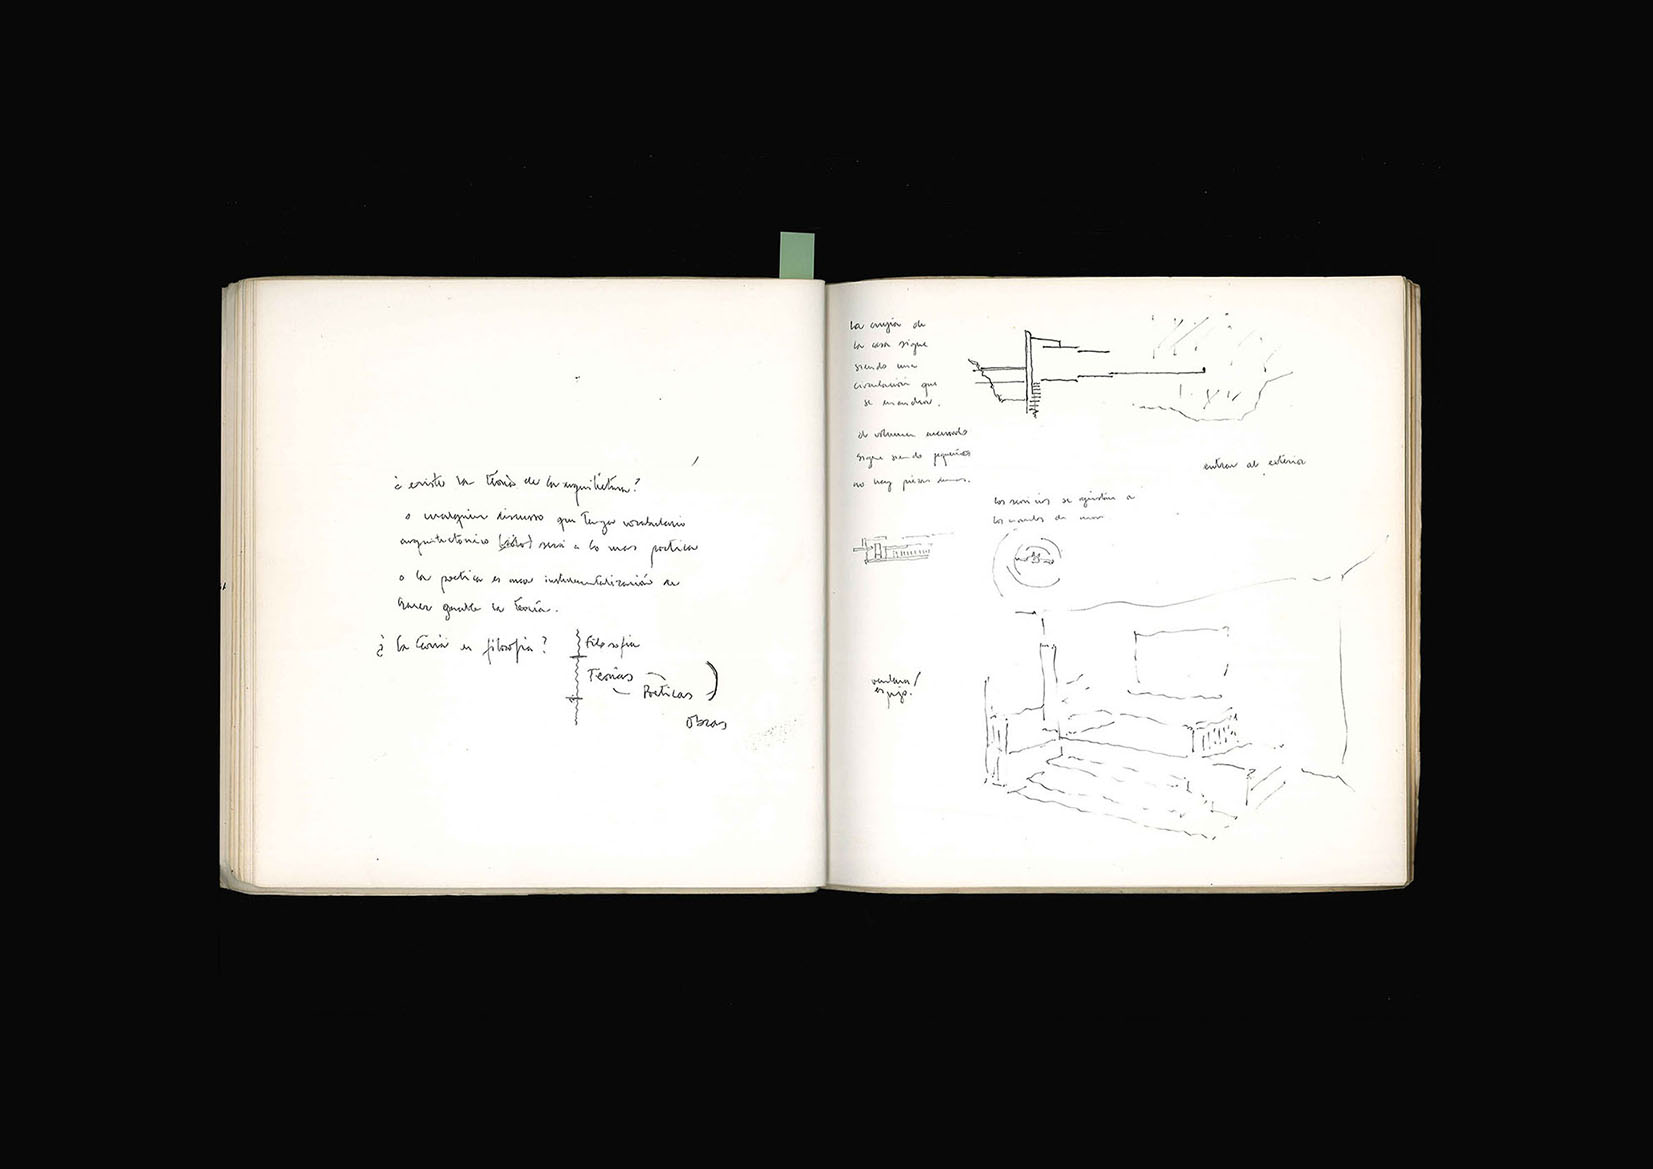 ¿ existe la teoría de la arquitectura?
o cualquier discurso que tenga vocabulario
arquitectónico (sólo) será a lo mas poetica
o la poetica es una instrumentalización de
hacer la teoría.
¿ la teoria es filosofia?
Filosofia
Teorias
Poeticas
Obras
La crujia de
la casa sigue
siendo una
circulación que
se ensancha.
el volumen
sigue siendo pequeño
no hay piezas
entrar al exterior
los servicios se ajustan a
los de
ventana/